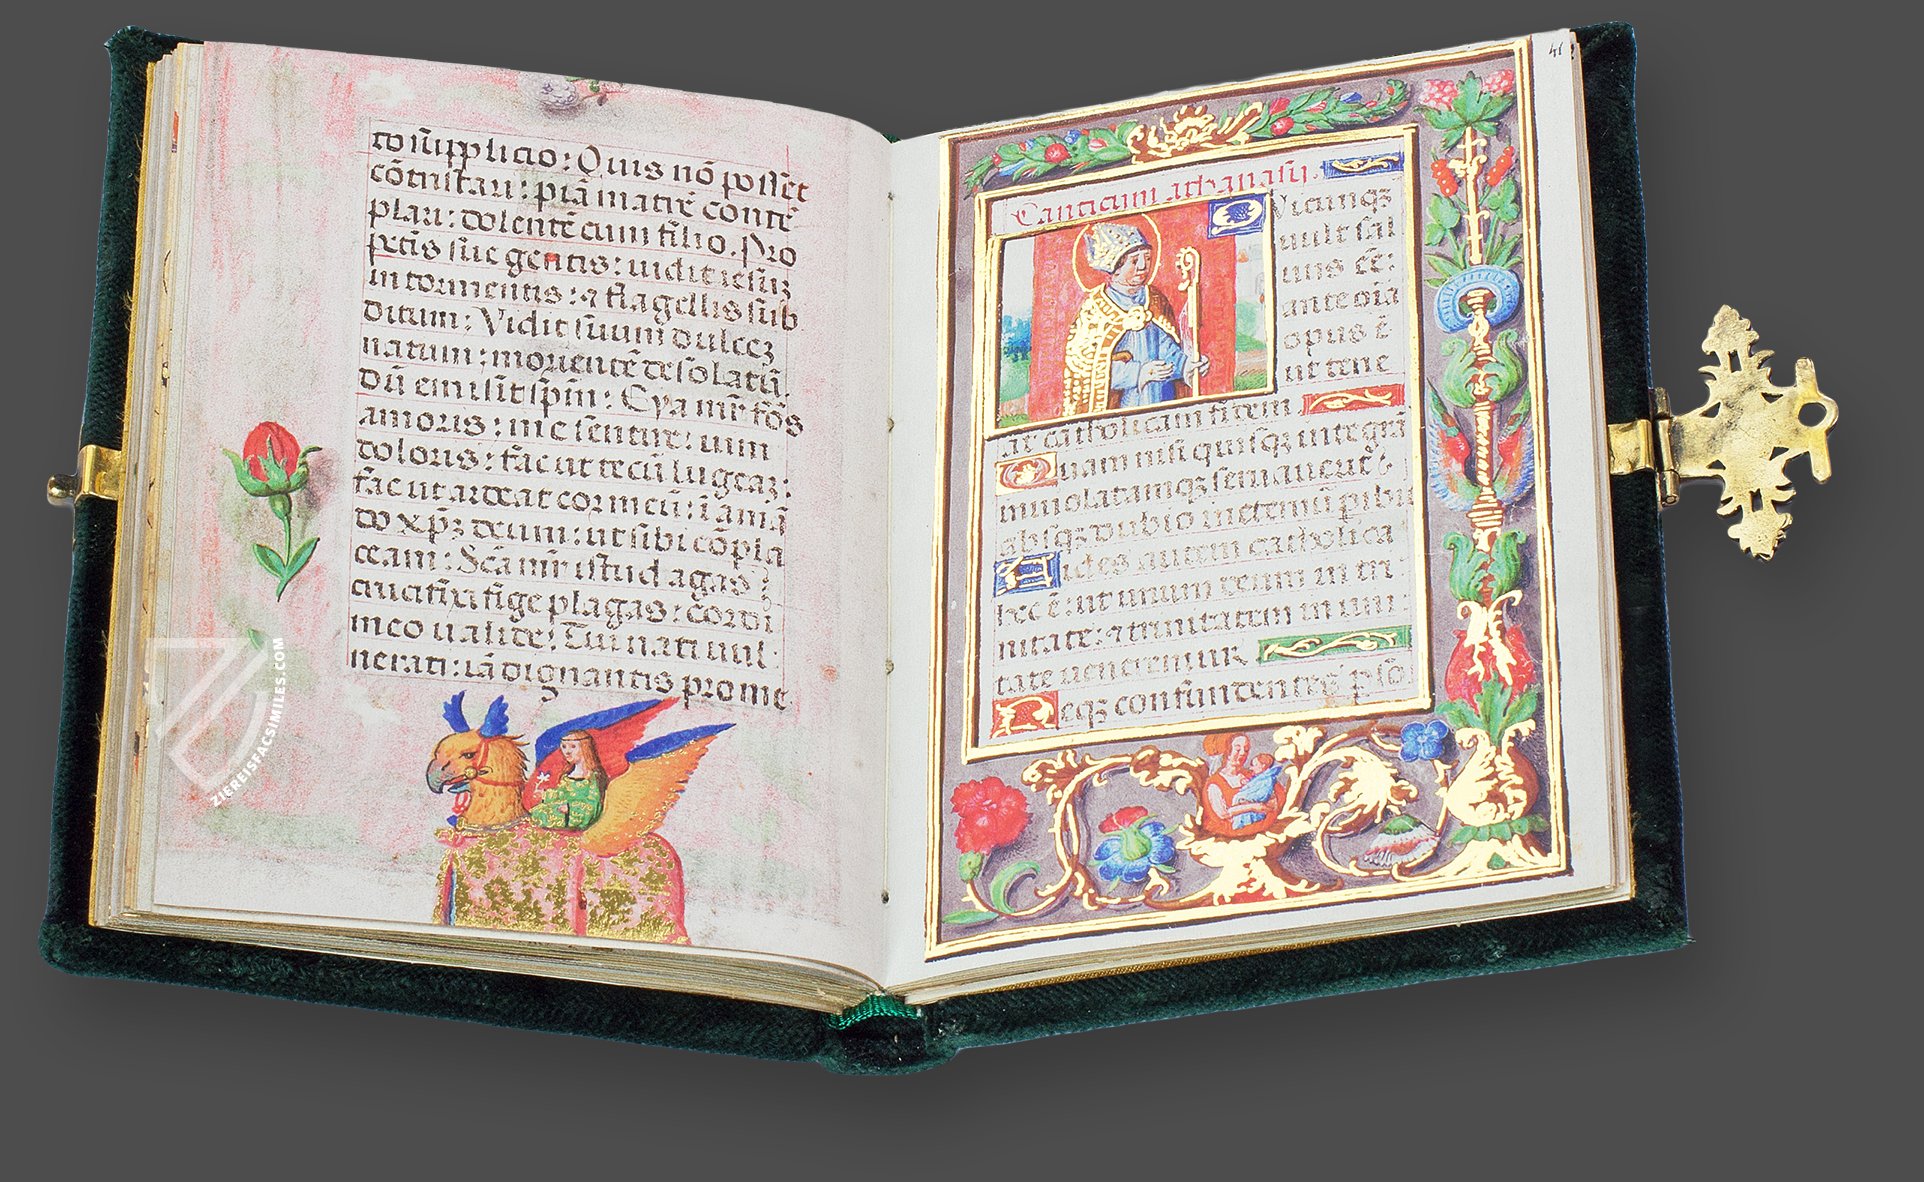 to sũpplicio: Quis nõ posset
cõtristari: piã matrẽ contẽ
plari: dolentẽ cum filio. Pro
pctĩs sue gentis: uidit iesuȝ
in tormentis: ⁊ flagellis sub
ditum: Vidit suum dulceȝ
natum: morientẽ desolatũ.
dũ emisit sp̃m: Eya mr̃ fõs
amoris: me sentire: uim
doloris: fac ut tecũ lugeaȝ:
fac ut ardeat cor meũ: ĩ amã
do xp̃ȝ deum: ut sibi cõpla
ceam: Sc̃a mr̃ istud agas:
crucifixi fige plagas: cordi
meo ualide: Tui nati uul
nerati: iã dignantis prome
41
Canticum athanasij.
Vicunqȝ
uult sal
uus eẽ:
ante oĩa
opus ẽ
ut tene
at catholicam fidem
Quam nisi quisqȝ integrã
inuiolatamqȝ seruauerit:
absqȝ dubio ineternũ pibit
Fides autem catholica
hec ẽ: ut unum deum in tri
nitate: ⁊ trinitatem in uni
tate ueneremur
Neqȝ confundentes psõ
ZIEREISFACSIMILES.COM